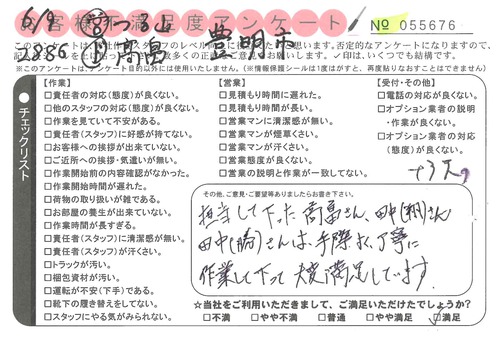 お客様満足度アンケート
№ 055676
6/9
2886
高畠
豊明市
このアンケートは
否定的なアンケートになりますので、
✓印は、いくつでも結構です。
※このアンケートは、アンケート目的以外には使用いたしません。(※情報保護シールは1度はがすと、再度貼りなおすことはできません)
●チェックリスト
【作業】
□責任者の対応(態度)が良くない。
□他のスタッフの対応(態度)が良くない。
□作業を見ていて不安がある。
□責任者(スタッフ)に好感が持てない。
□お客様への挨拶が出来ていない。
□ご近所への挨拶・気遣いが無い。
□作業開始前の内容確認がなかった。
□作業開始時間が遅れた。
□荷物の取り扱いが雑である。
□お部屋の養生が出来ていない。
□作業時間が長すぎる。
□責任者(スタッフ)に清潔感が無い。
□責任者(スタッフ)が汗くさい。
□トラックが汚い。
□梱包資材が汚い。
□運転が不安(下手)である。
□靴下の履き替えをしてない。
□スタッフにやる気がみられない。
【営業】
□見積もり時間に遅れた。
□見積もり時間が長い。
□営業マンに清潔感が無い。
□営業マンが煙草くさい。
□営業マンが汗くさい。
□営業態度が良くない。
□営業の説明と作業が一致してない。
【受付・その他】
□電話の対応が良くない。
□オプション業者の説明
・作業が良くない。
□オプション業者の対応
(態度)が良くない。
その他、ご意見・ご要望等ありましたらお書き下さい。
担当して下った高畠さん、田中(翔)さん
田中(勝)さんは、手際よく、丁寧に
作業して下って大変満足しています
☆当社をご利用いただきまして、ご満足いただけたでしょうか?
□不満 □やや不満 □普通 □やや満足 □満足